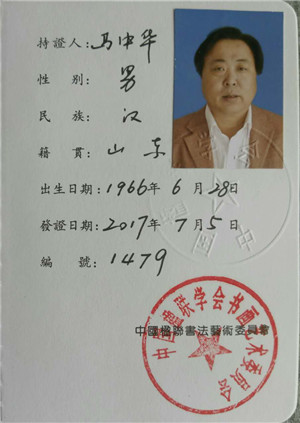 持證人：马中华
性别：男
民族：汉
籍貫：山东
出生日期：1966年6月28日
發證日期：2017年7月5日
編號：1479
中國楹聯書法藝術委員會
中国楹联学会书画艺术委员会